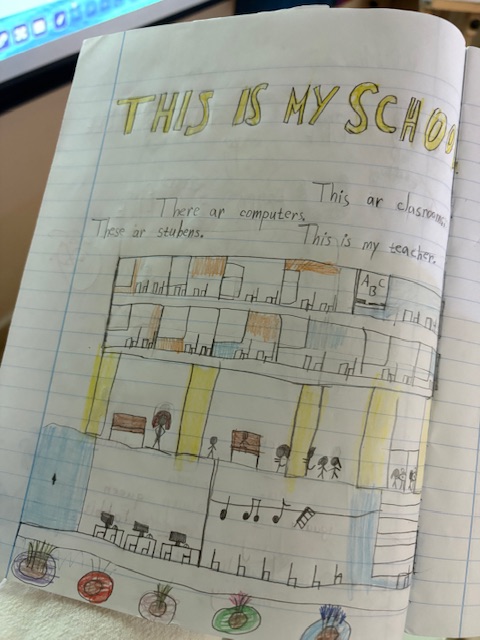 THIS IS MY SCHOO
This ar clasrooms.
There ar computers.
These ar stubens.
This is my teacher.
ABC